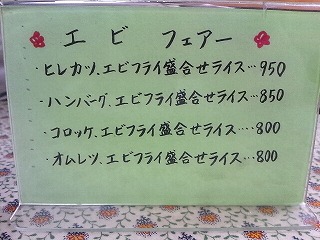 エビ フェアー
・ヒレカツ、エビフライ盛合せライス…950
・ハンバーグ、エビフライ盛合せライス…850
・コロッケ、エビフライ盛合せライス…800
・オムレツ、エビフライ盛合せライス…800